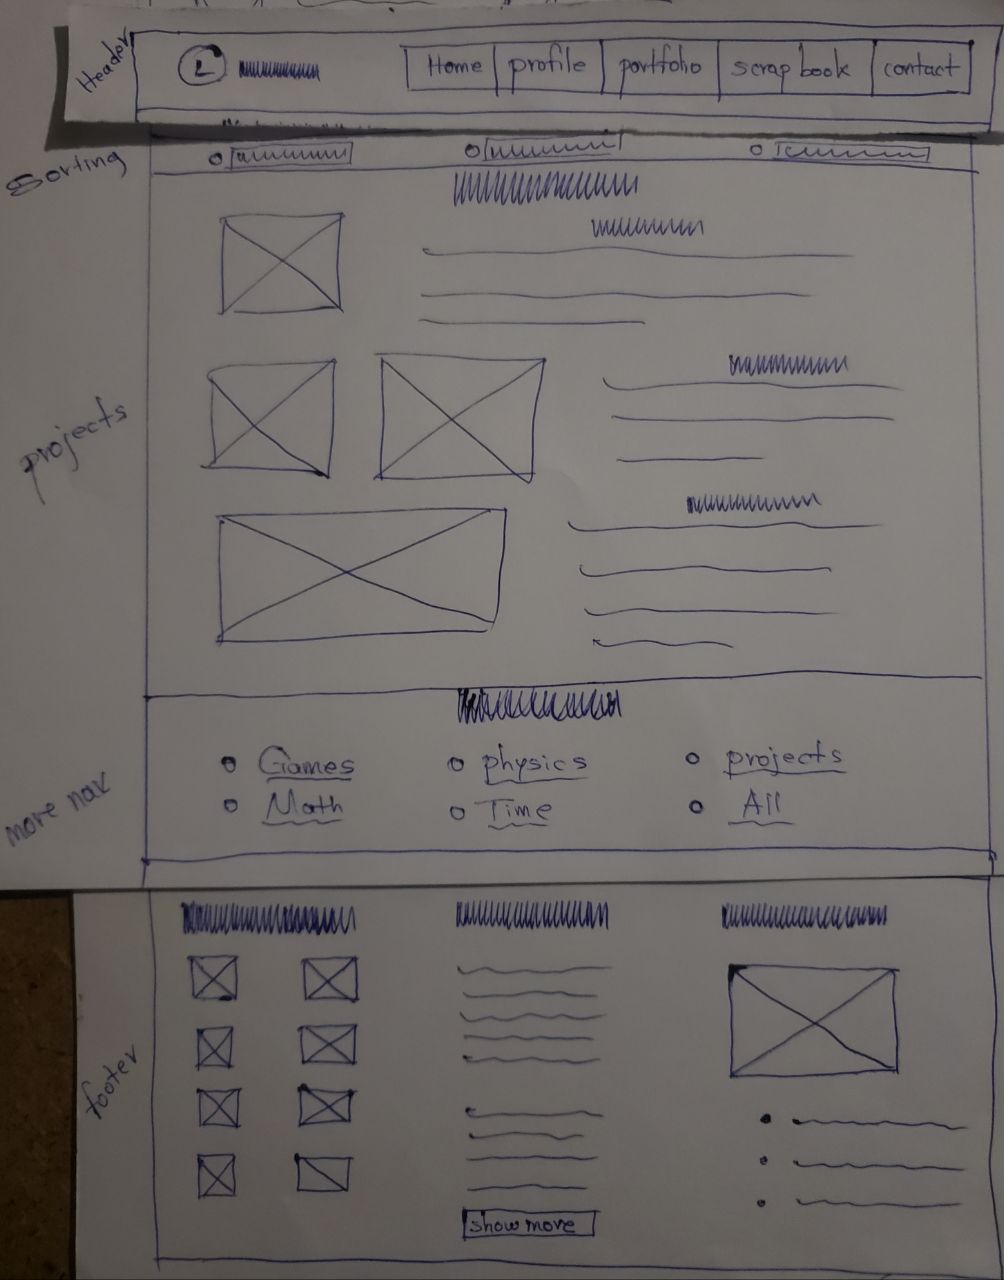 Header
L
Home profile portfolio scrap book contact
Sorting
projects
more nav
Games physics projects
Math Time All
footer
show more